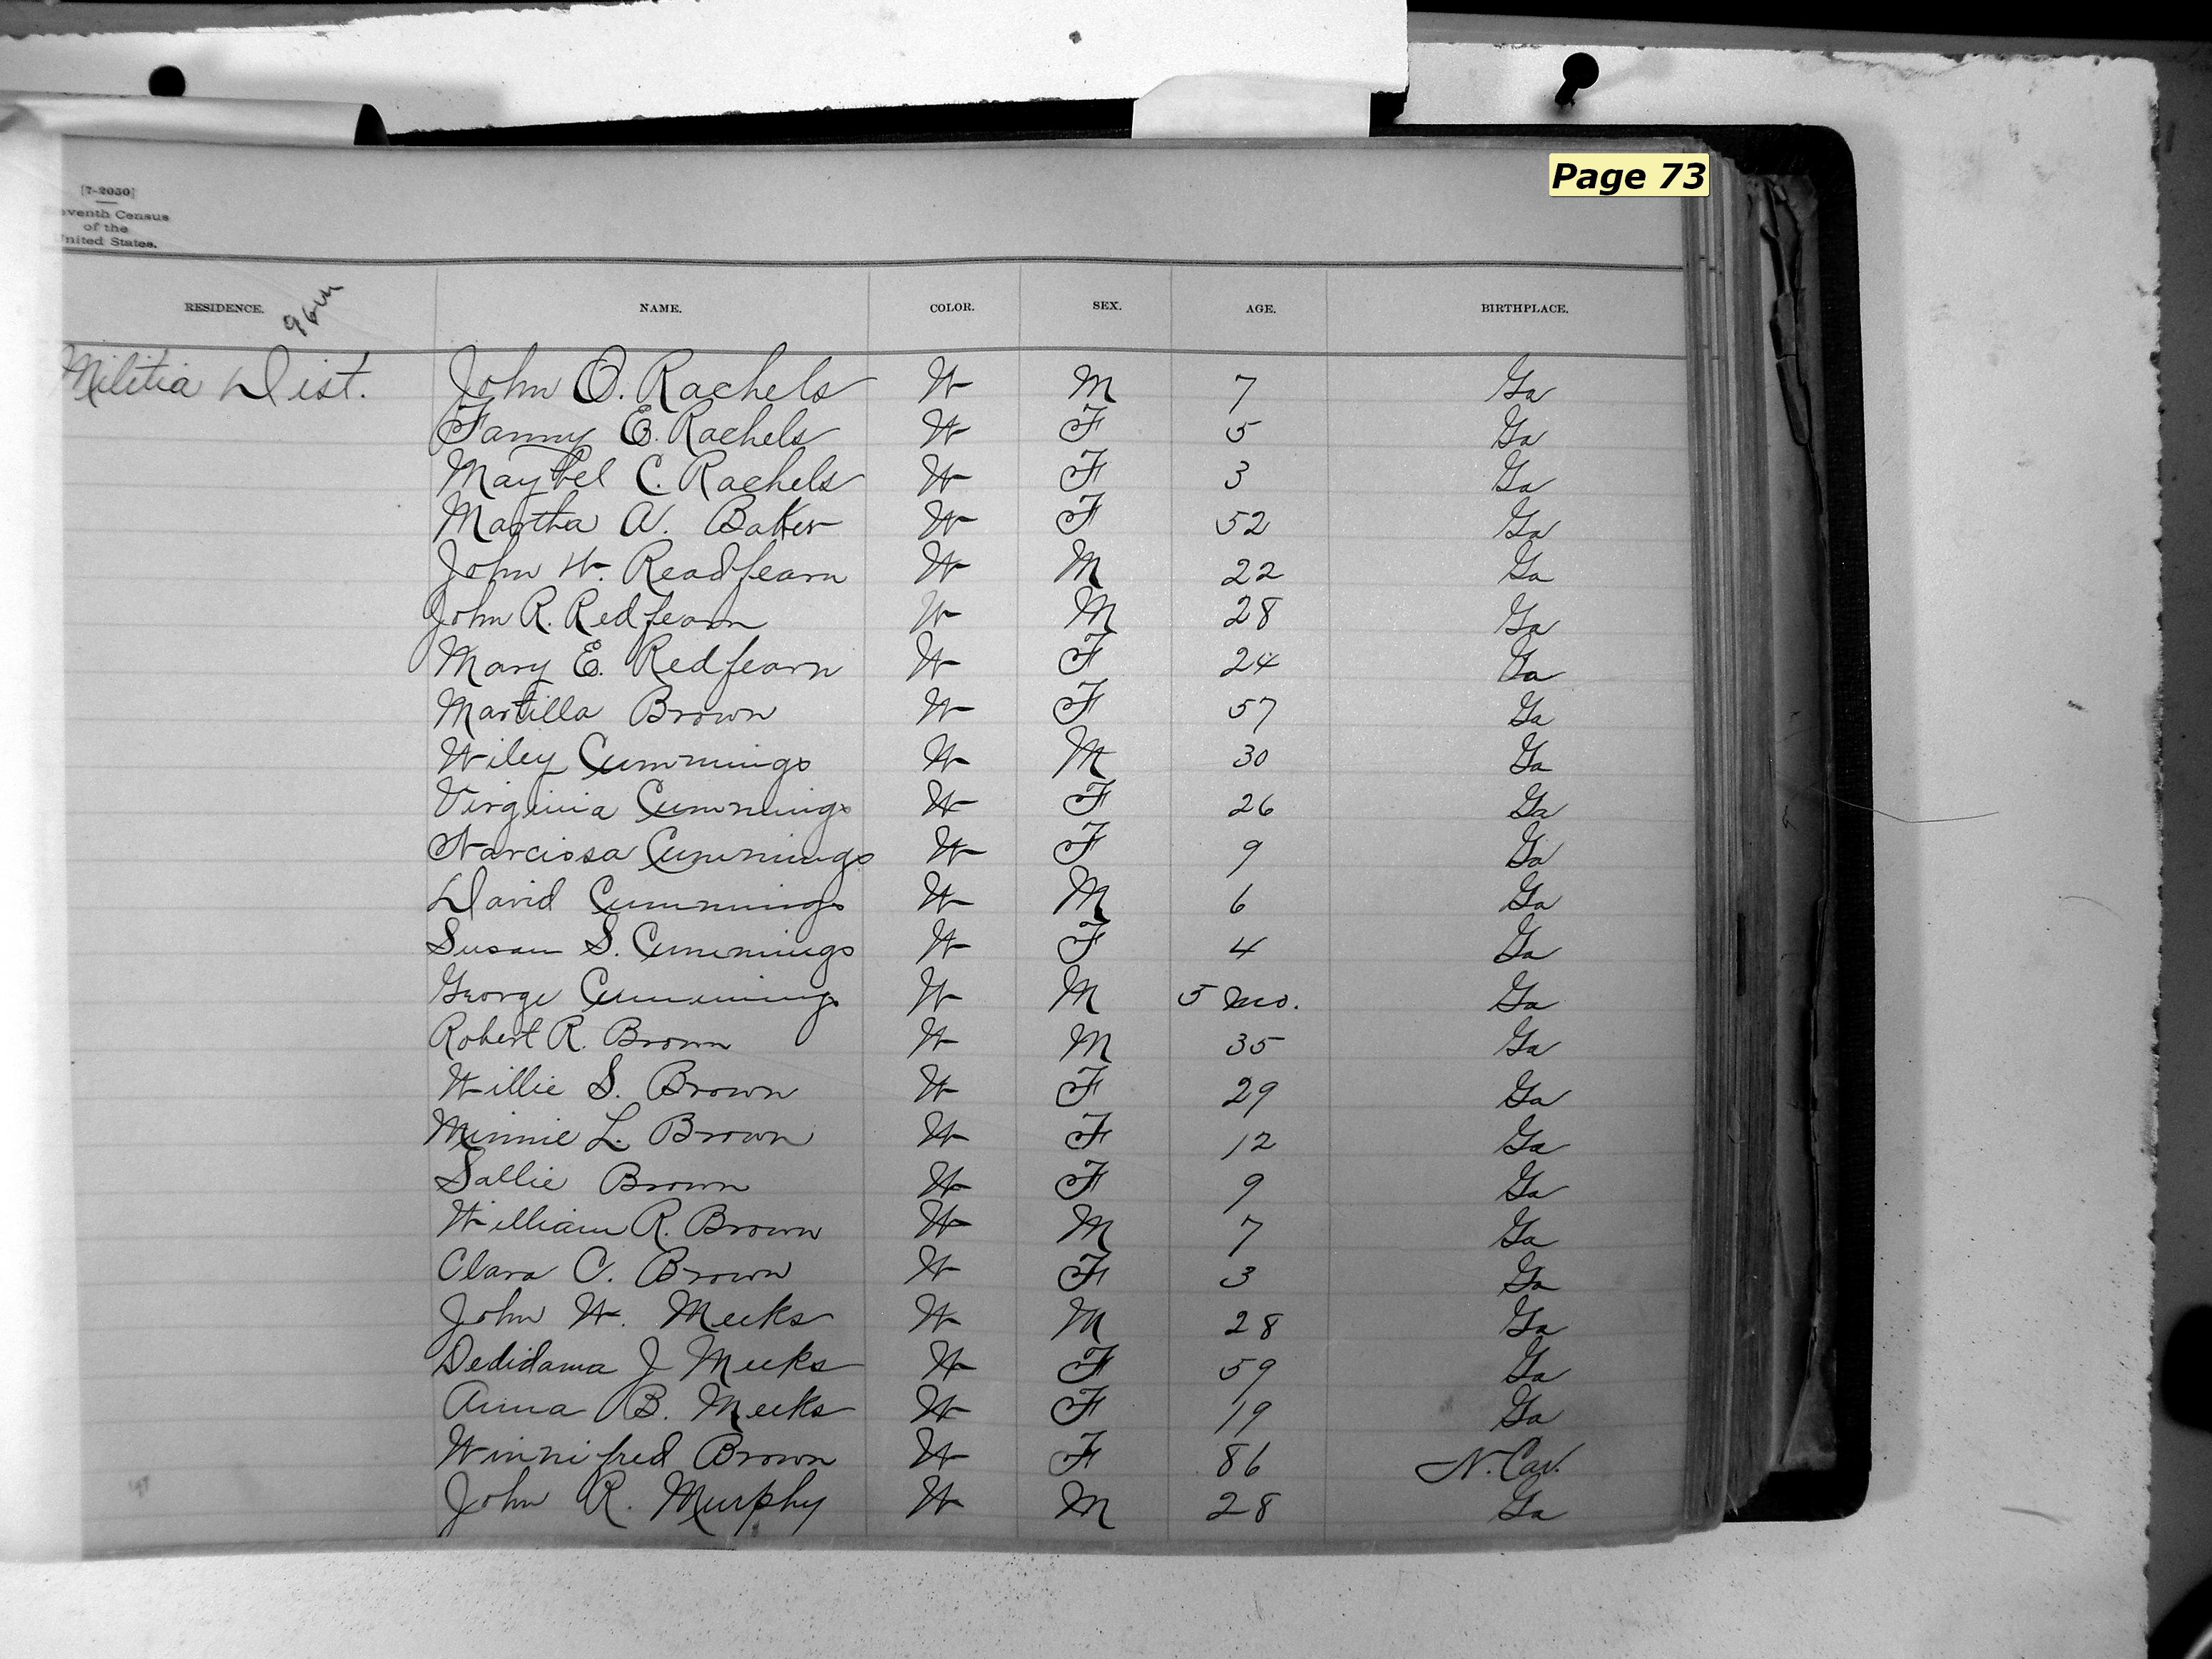 Page 73
[7-2050]
eventh Census
of the
United States.
RESIDENCE. NAME. COLOR. SEX. AGE. BIRTHPLACE.
Militia Dist. John O. Rachels W M 7 Ga
Fanny E. Rachels W F 5 Ga
Maybel C. Rachels W F 3 Ga
Martha A. Baker W F 52 Ga
John W. Readfearn W M 22 Ga
John R. Redfearn W M 28 Ga
Mary E. Redfearn W F 24 Ga
Martilla Brown W F 57 Ga
Wiley Cummings W M 30 Ga
Virginia Cummings W F 26 Ga
Narcissa Cummings W F 9 Ga
David Cummings W M 6 Ga
Susan S. Cummings W F 4 Ga
George Cummings W M 5 mo. Ga
Robert R. Brown W M 35 Ga
Willie S. Brown W F 29 Ga
Minnie L. Brown W F 12 Ga
Sallie Brown W F 9 Ga
William R. Brown W M 7 Ga
Clara C. Brown W F 3 Ga
John W. Meeks W M 28 Ga
Dedidama J Meeks W F 59 Ga
Anna B. Meeks W F 19 Ga
Winnifred Brown W F 86 N. Car.
John R. Murphy W M 28 Ga